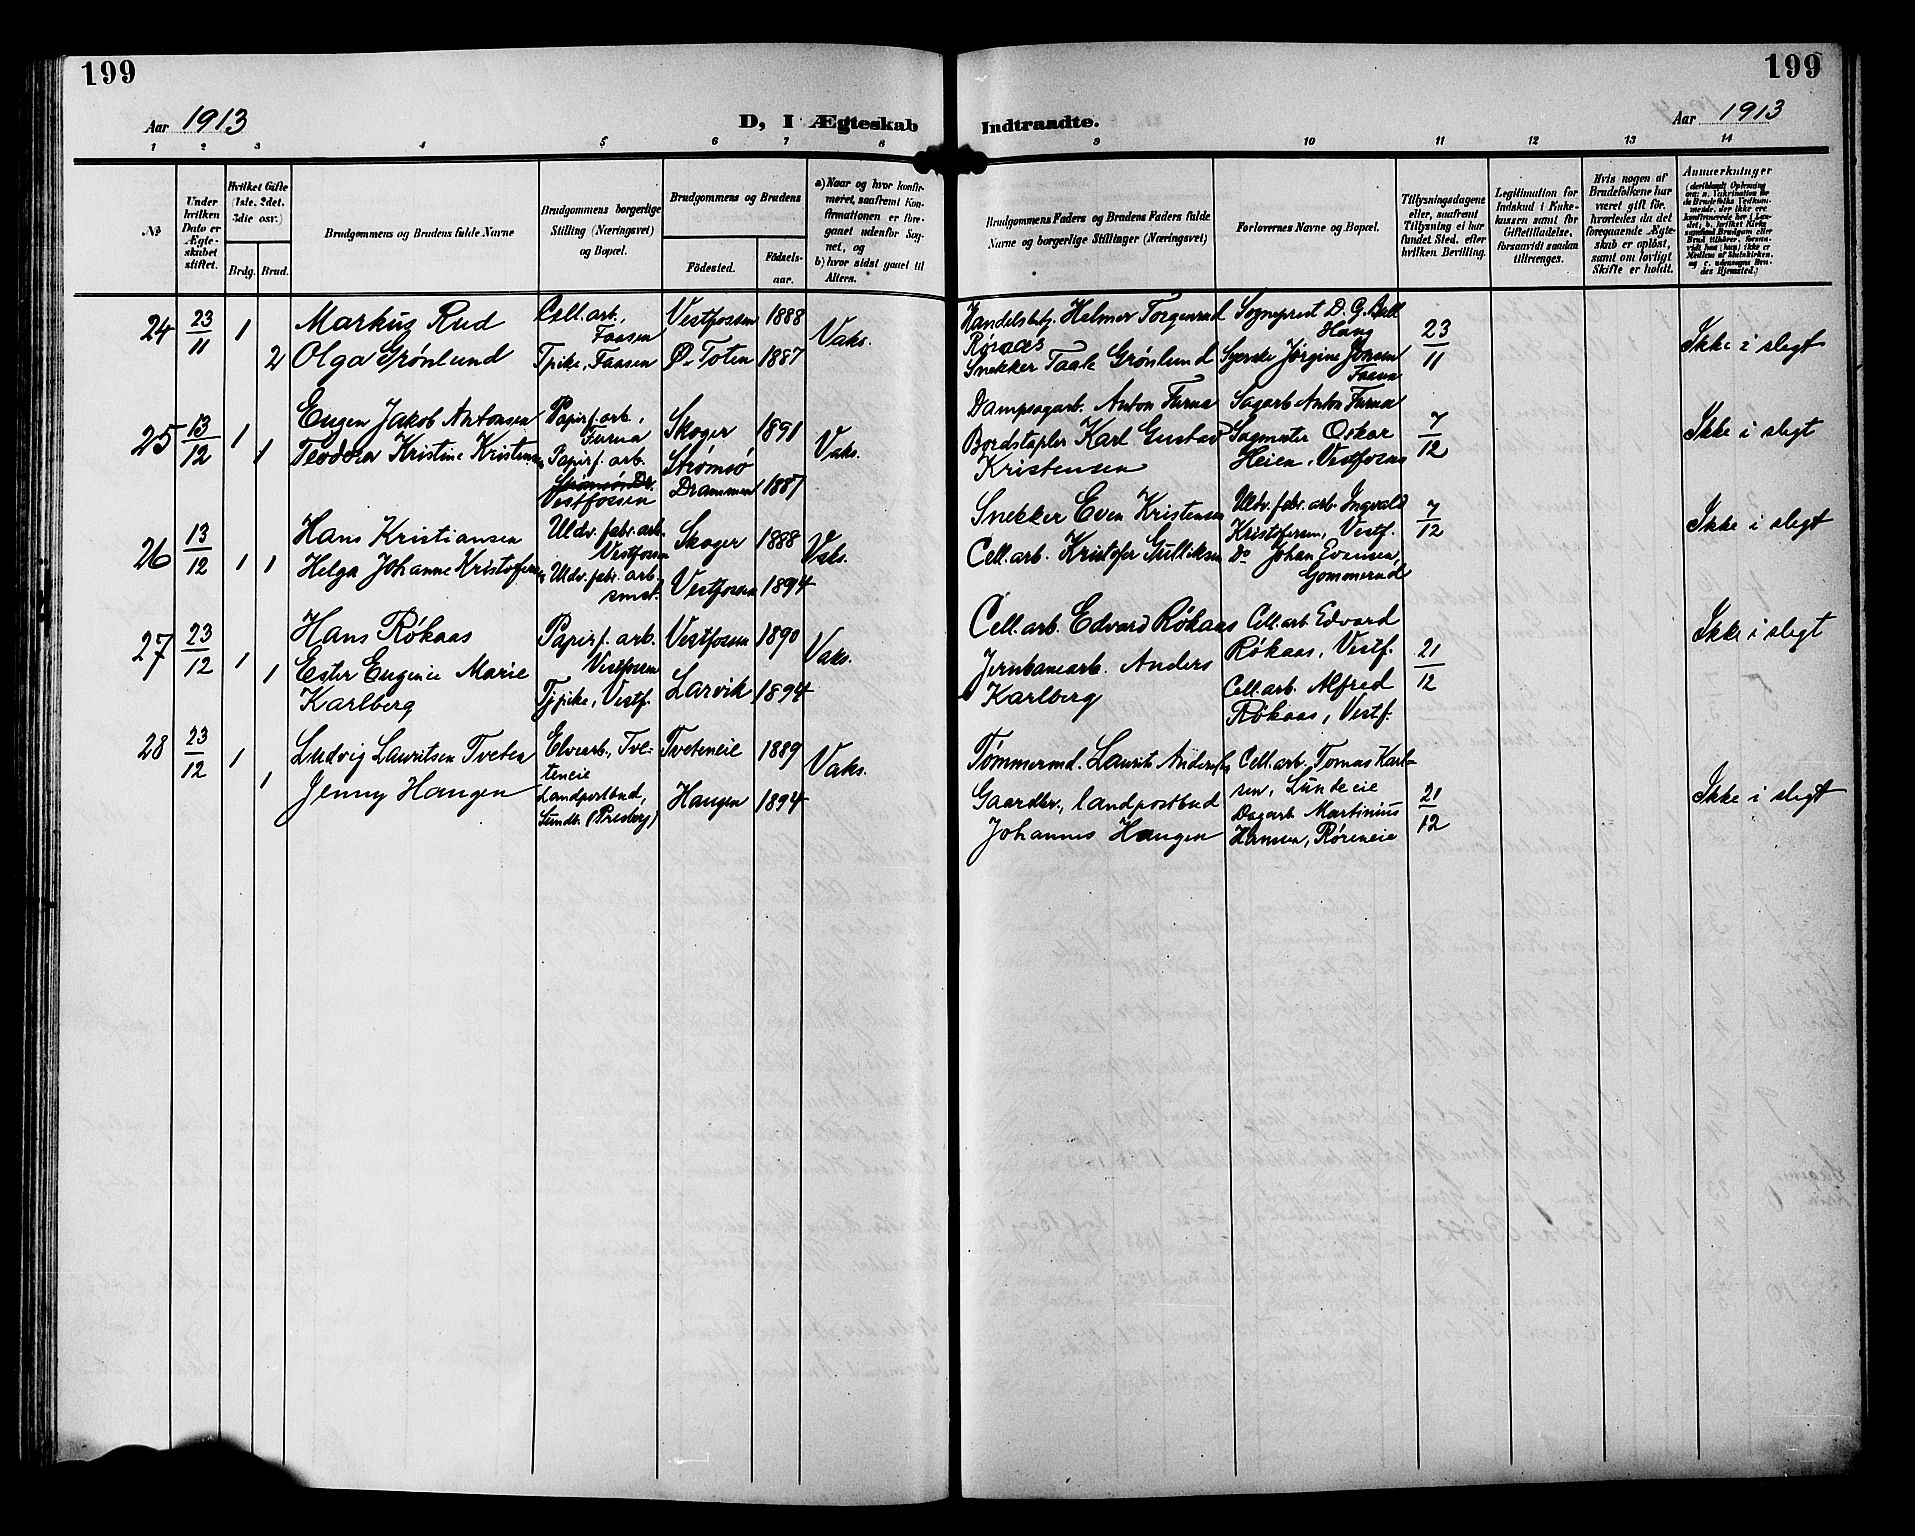 199
Aar 1913
D, I Ægteskab
1 2 3 4 5 6 7 8
№
Under hvilken Dato er Ægteskabet stiftet.
Hvilket Gifte (1ste, 2det, 3die osv.)
Brdg. Brud.
Brudgommens og Brudens fulde Navne
Brudgommens borgerlige Stilling (Næringsvei) og Bopæl.
Brudgommens og Brudens
Födested. Födsels-aar.
a) Naar og hvor konfirmeret, saafremt Konfirmationen er foregaaet udenfor Sognet, og
b) hvor sidst gaaet til Alters.
24 23/11 1 Markus Rud Cell.arb., Faasen Vestfossen 1888 Vaks.
2 Olga Grønlund Tpike, Faasen Ø. Toten 1887
25 13/12 1 Eugen Jakob Antonsen Papirf. arb., Furua Skoger 1891 Vaks.
1 Teodora Kristine Kristensen Papirf. arb. Strømsø Dr. Vestfossen Strømsø Drammen 1887
26 13/12 1 Hans Kristiansen Uldv. fabr. arb. Vestfossen Skoger 1888 Vaks.
1 Helga Johanne Kristofersen Uldv. fabr. arb. smst. Vestfossen 1894
27 23/12 1 Hans Røkaas Papirf. arb. Vestfossen Vestfossen 1890 Vaks.
1 Ester Eugenie Marie Karlberg Tjpike, Vestf. Larvik 1894
28 23/12 1 Ludvig Lauritsen Tveten Elvearb., Tveteneie Tveteneie 1889 Vaks.
1 Jenny Haugen Landpostbud, Sundb. (Presbg) Haugen 1894
199
Indtraadte.
Aar 1913
9 10 11 12 13 14
Brudgommens Faders og Brudens Faders fulde Navne og borgerlige Stillinger (Næringsvei)
Forlovernes Navne og Bopæl.
Tillysningsdagene eller, saafremt Tillysning ei har fundet Sted, efter hvilken Bevilling.
Legitimation for Indskud i Enkekassen samt for Giftetilladelse, forsaavidt saadan tiltrænges.
Hvis nogen af Brudefolkene har været gift för, hvorledes da det foregaaende Ægteskab er oplöst, samt om lovligt Skifte er holdt.
Anmærkninger
Handelsbetj. Helmer Torgersrud Røraas Sogneprest D. G. Bull Haug 23/11 Ikke i slegt
Snekker Taale Grønlund Syerske Jørgine Jonsen Faasen
Dampsagarb. Anton Furua Sagarb Anton Furua 7/12 Ikke i slegt
Bordstapler Karl Gustav Kristensen Sagmester Oskar Heien, Vestfossen
Snekker Even Kristensen Uldv. fabr. arb Ingvald Kristofersen, Vestf. 7/12 Ikke i slegt
Cell.arb. Kristofer Gulliksen Do Johan Evensen, Gommerud
Cell.arb. Edvard Røkaas Cell.arb Edvard Røkaas, Vestf. 21/12 Ikke i slegt
Jernbanearb. Anders Karlberg Cell.arb. Alfred Røkaas, Vestf.
Tømmermd. Laurits Andersen Cell.arb. Tomas Karlsen, Lundeeie 21/12 Ikke i slegt
Gaardbr., landpostbud Johannes Haugen Dagarb Martinius Hansen, Røreneie